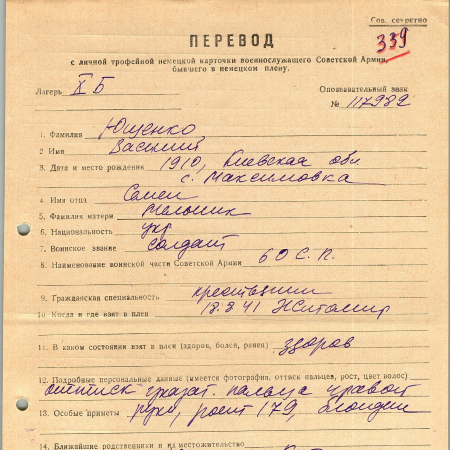 Сов. секретно
339
ПЕРЕВОД
с личной трофейной немецкой карточки военнослужащего Советской Армии,
бывшего в немецком плену.
Лагерь X Б
Опознавательный знак
№ 117982
1. Фамилия Ющенко
2 Имя Василий
3. Дата и место рождения 1910, Киевская обл
с. Максимовка
4. Имя отца Семен
5. Фамилия матери Мельник
6. Национальность укр
7. Воинское звание солдат
8. Наименование воинской части Советской Армии 60 С.П.
9. Гражданская специальность крестьянин
10. Когда и где взят в плен 18.8 41 Житомир
11. В каком состоянии взят в плен (здоров, болен, ранен) здоров
12. Подробные персональные данные (имеется фотография, оттиск пальцев, рост, цвет волос)
оттиск указат. пальца правой
13. Особые приметы руки, рост 179, блондин
14. Ближайшие родственники и их местожительство